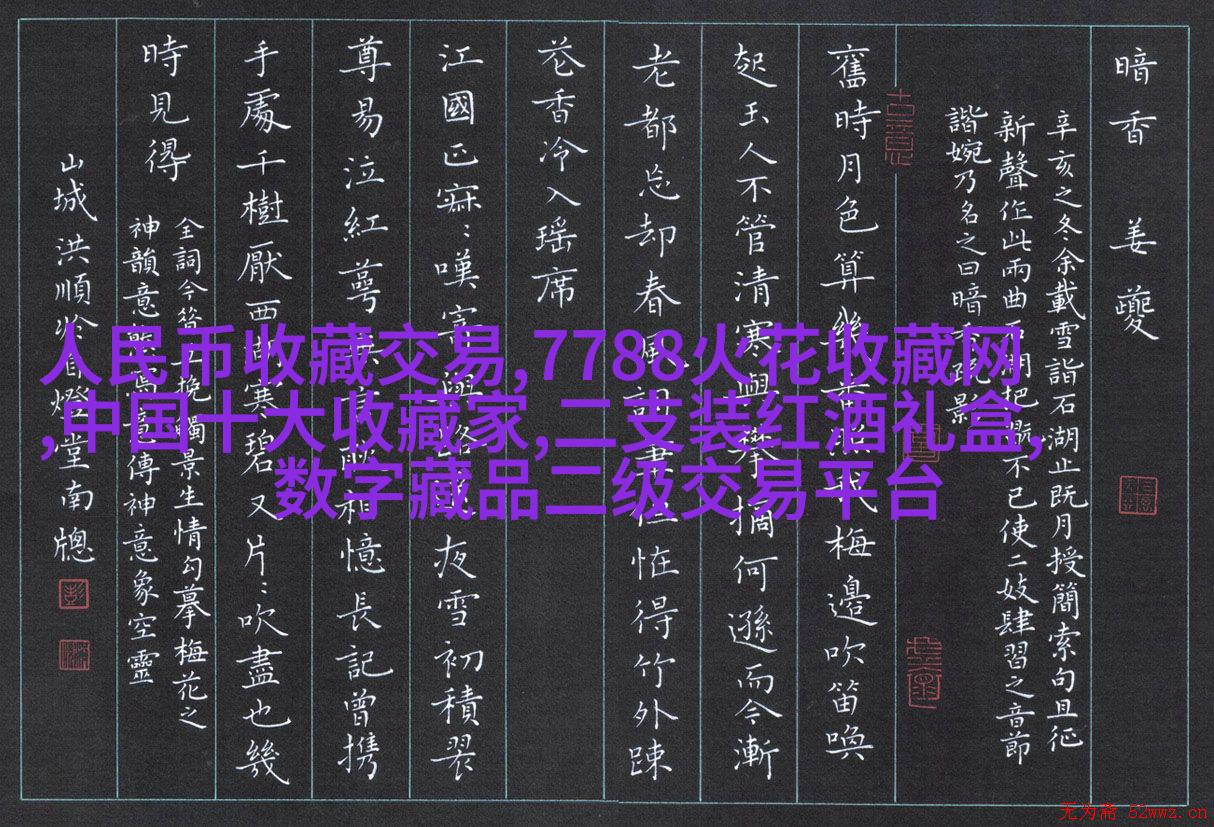 暗香 姜夔
辛亥之冬余載雪詣石湖止既月授簡索句且征
新聲作此兩曲石湖把翫不已使二妓肆習之音節
諧婉乃名之曰暗
影
舊時月色算幾
梅邊吹笛喚
起玉人不管清寒與攀摘何遜而今漸
老都忘却春風詞筆但怪得竹外疎
花香冷入瑤席
江國正寂:嘆寄與路
夜雪初積翠
尊易泣紅萼
相憶長記曾携
手處千樹壓西湖寒碧又片:吹盡也幾
時見得
全詞今
挽觸景生情勾摹梅花之
神韻意
傳神意象空靈
山城洪順
燈堂南牕
人民币收藏交易,7788火花收藏网
,中国十大收藏家,二支装红酒礼盒,
数字藏品二级交易平台
无为斋 52wwz.cn